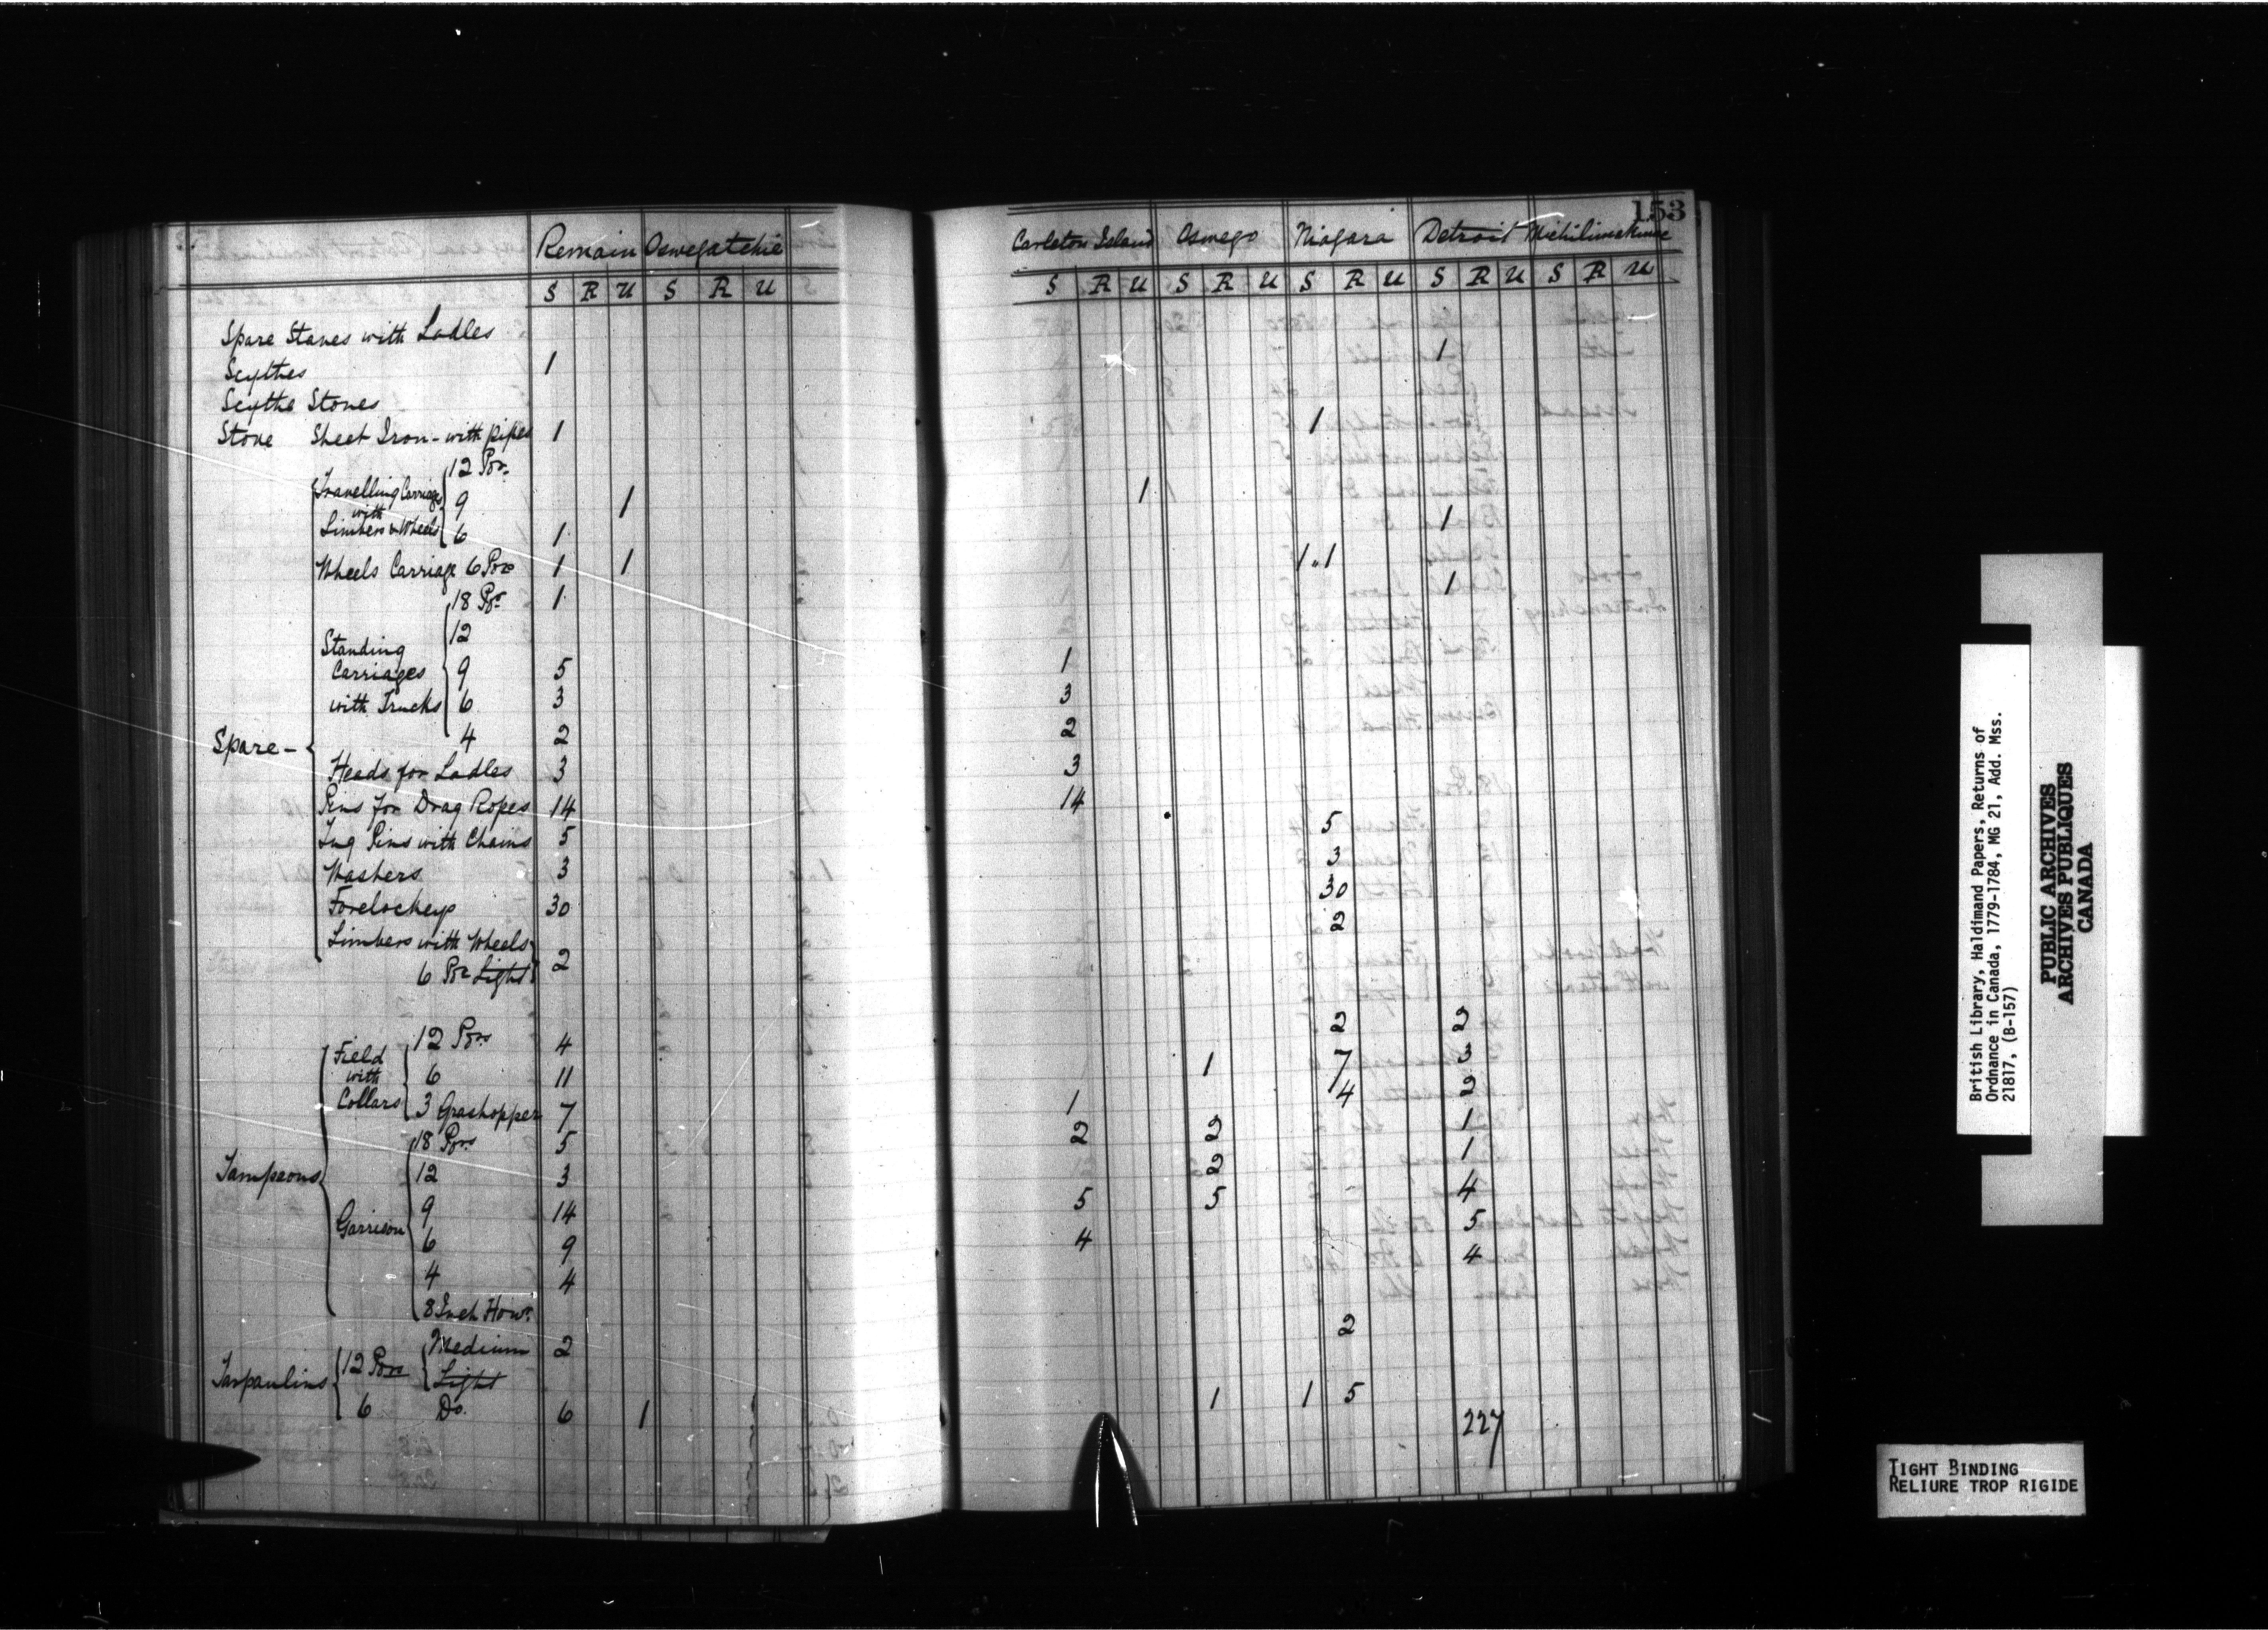 153
Remain Oswegatchie Carleton Island Oswego Niagara Detroit Michilimakinac
S R U S R U S R U S R U S R U S R U S R U
Spare Staves with Ladles
Scythes 1 1
Scythe Stones
Stove Sheet Iron - with pipes 1 1
Spare -
Travelling Carriages with Limbers & Wheels
12 Por.
9 1 1
6 1 1
Wheels Carriage 6 Pors 1 1 1 1
Standing Carriages with Trucks
18 Pr. 1 1
12
9 5 1
6 3 3
4 2 2
Heads for Ladles 3 3
Pins for Drag Ropes 14 14
Lug Pins with Chains 5 5
Washers 3 3
Forelockeys 30 30
Limbers with Wheels
6 Por Light 2 2
Tampeons
Field with Collars
12 Pors 4 2 2
6 11 1 7 3
3 Grashopper 7 1 4 2
Garrison
18 Pors 5 2 2 1
12 3 2 1
9 14 5 5 4
6 9 4 5
4 4 4
8 Inch Howr.
Tarpaulins
12 Pors Medium 2 2
Light
6 Do. 6 1 1 1 5
227
British Library, Haldimand Papers, Returns of
Ordnance in Canada, 1779-1784, MG 21, Add. Mss.
21817, (B-157)
PUBLIC ARCHIVES
ARCHIVES PUBLIQUES
CANADA
TIGHT BINDING
RELIURE TROP RIGIDE